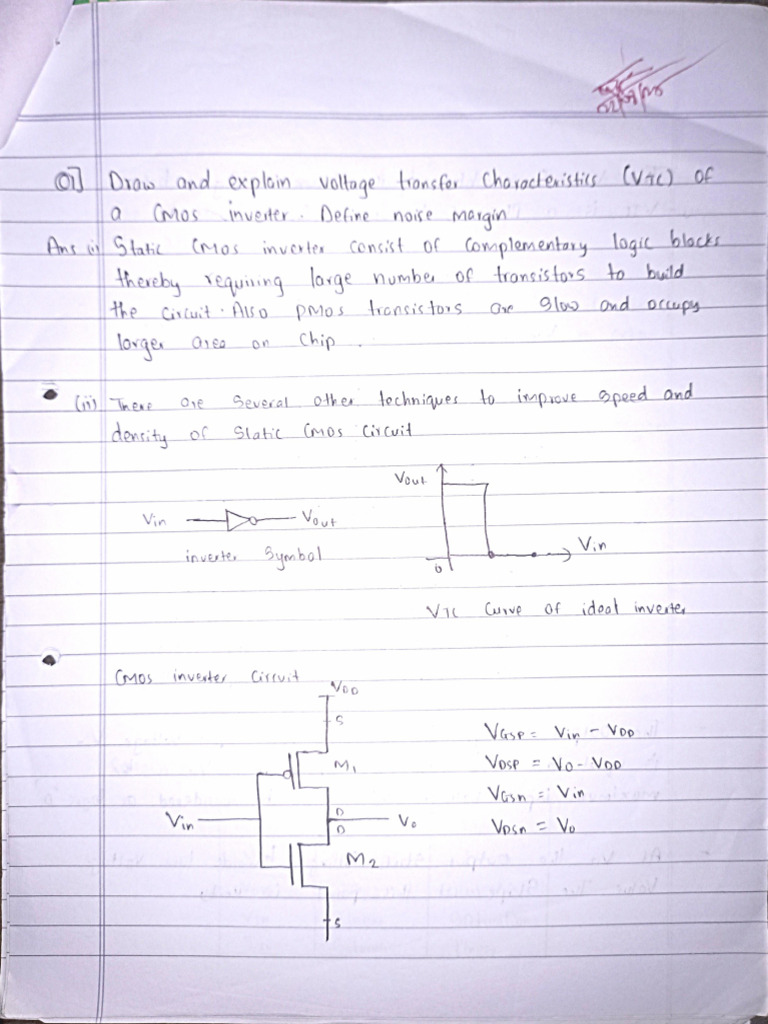 Q1] Draw and explain voltage transfer characteristics (VTC) of
a CMOS inverter. Define noise margin
Ans (i) Static CMOS inverter consist of complementary logic blocks
thereby requiring large number of transistors to build
the circuit. Also PMOS transistors are slow and occupy
larger area on chip.
(ii) There are several other techniques to improve speed and
density of static CMOS circuit
Vin Vout
inverter symbol
Vout
Vin
0
VTC curve of ideal inverter
CMOS inverter circuit
VDD
S
M1
D
Vin
Vo
D
M2
S
VGSP = Vin - VDD
VDSP = VO - VDD
VGSn = Vin
VDSn = Vo